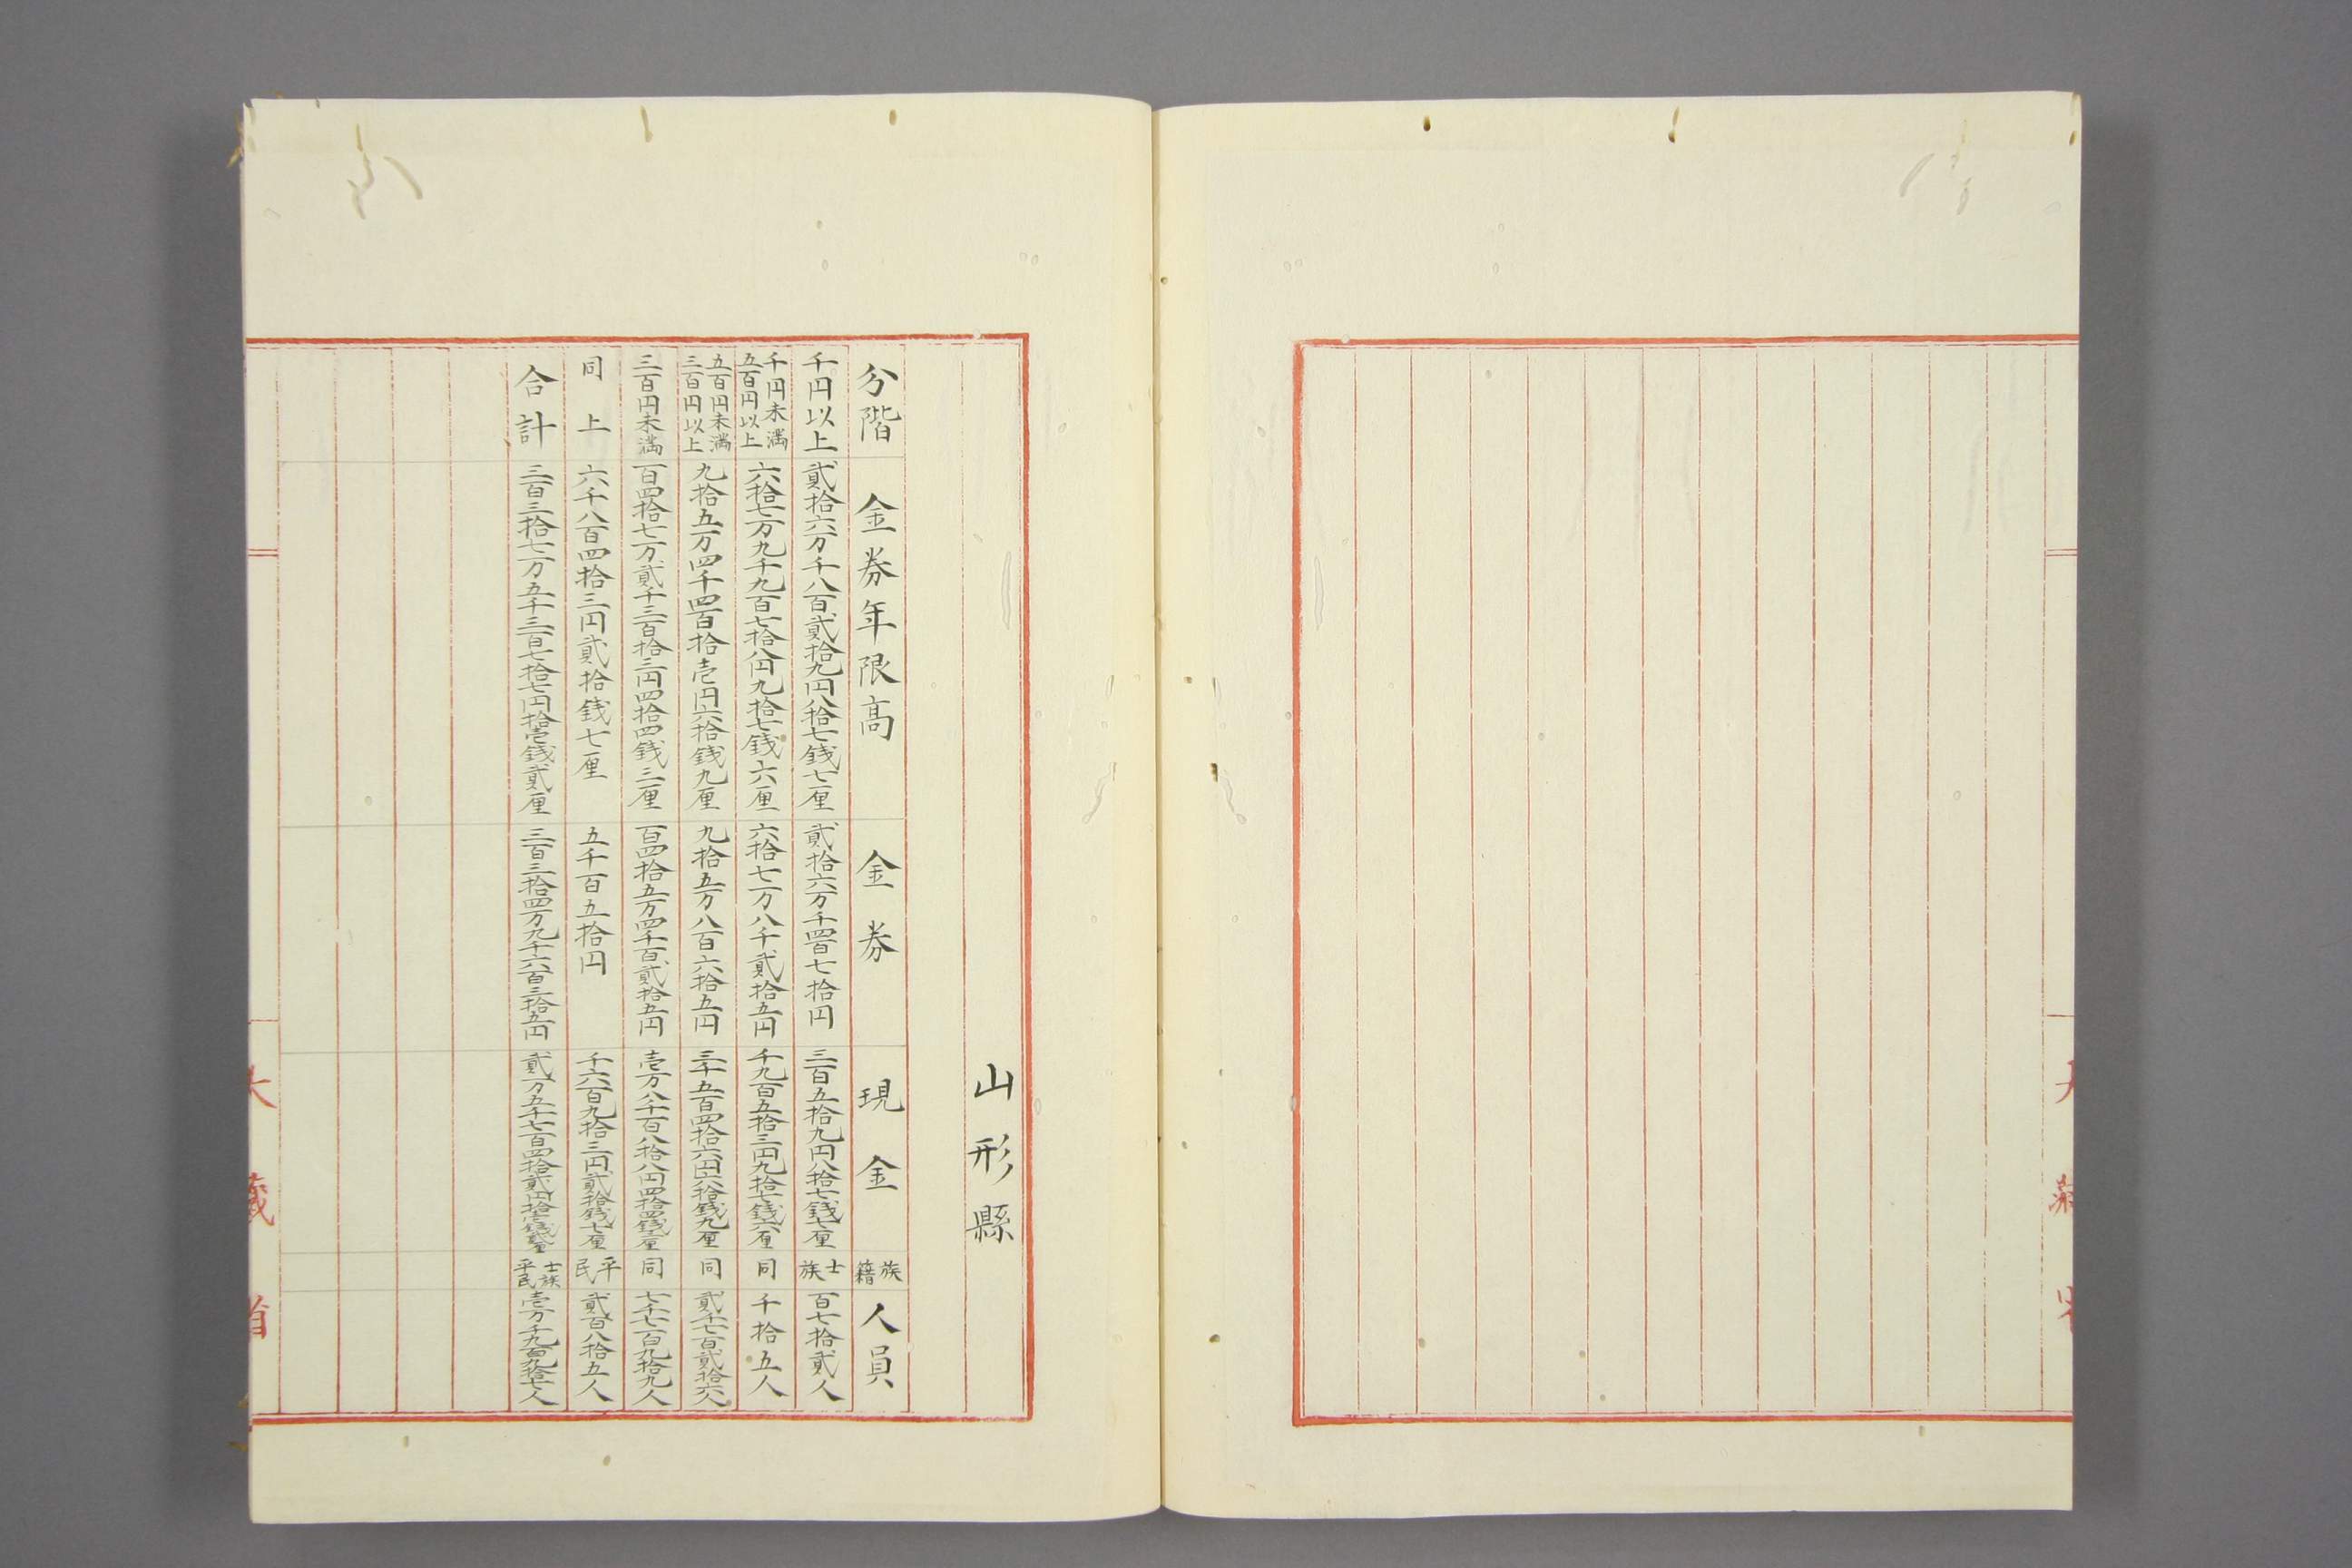 山形縣
分階 金券年限高 金券 現金 族籍 人員
千円以上 貳拾六万千八百貳拾九円八拾七銭七厘 貳拾六万千四百七拾円 三百五拾九円八拾七銭七厘 士族 百七拾貳人
千円未満五百円以上 六拾七万九千九百七拾八円九拾七銭六厘 六拾七万八千貳拾五円 千九百五拾三円九拾七銭六厘 同 千拾五人
五百円未満三百円以上 九拾五万四千四百拾壱円六拾銭九厘 九拾五万八百六拾五円 三千五百四拾六円六拾銭九厘 同 貳千七百貳拾六人
三百円未満 百四拾七万貳千三百拾三円四拾四銭三厘 百四拾五万四千百貳拾五円 壱万八千百八拾八円四拾四銭三厘 同 七千七百九拾九人
同上 六千八百四拾三円貳拾銭七厘 五千百五拾円 千六百九拾三円貳拾銭七厘 平民 貳百八拾五人
合計 三百三拾七万五千三百七拾七円拾壱銭貳厘 三百三拾四万九千六百三拾五円 貳万五千七百四拾貳円拾壱銭貳厘 士族平民 壱万千九百九拾七人